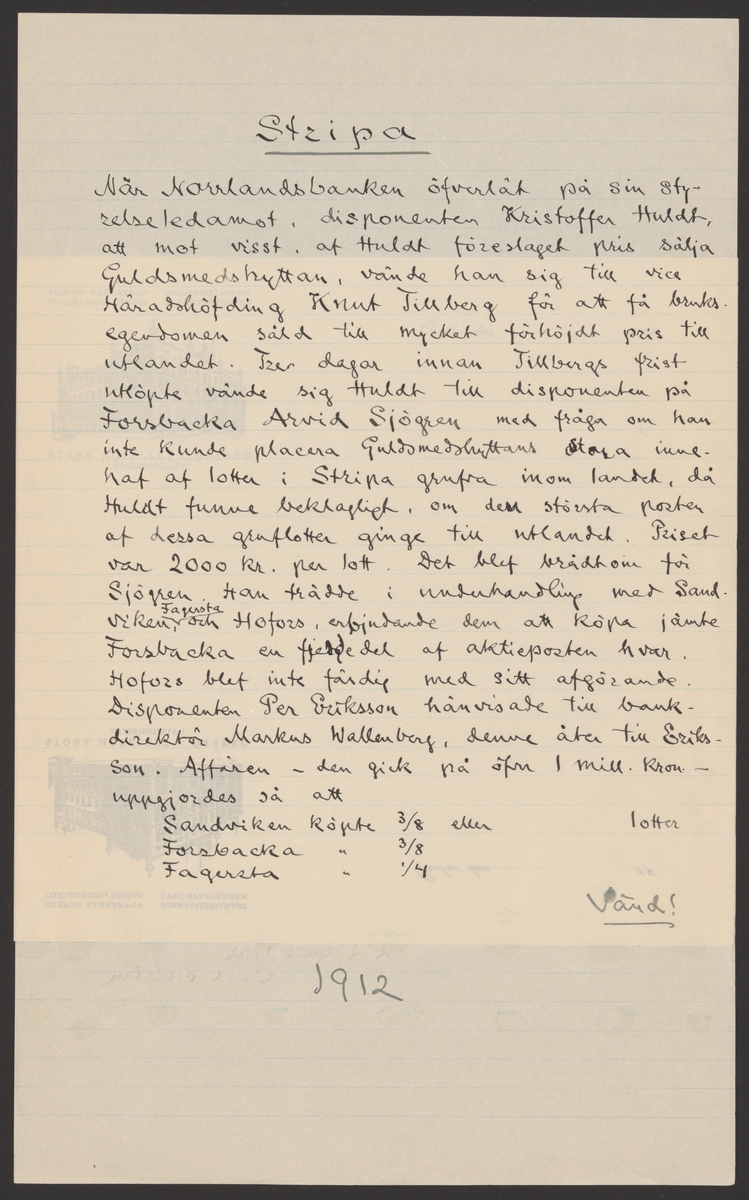 Stripa
När Norrlandsbanken öfverlät på sin sty-
relseledamot, disponenten Kristoffer Huldt,
att mot visst, af Huldt föreslaget pris sälja
Guldsmedshyttan, vände han sig till vice
Häradshöfding Knut Tillberg för att få bruks-
egendomen såld till mycket förhöjdt pris till
utlandet. Tre dagar innan Tillbergs frist
utlöpte vände sig Huldt till disponenten på
Forsbacka Arvid Sjögren med fråga om han
inte kunde placera Guldsmedshyttans stora inne-
haf af lotter i Stripa grufva inom landet, då
Huldt funne beklagligt, om den största posten
af dessa gruflotter ginge till utlandet. Priset
var 2000 kr. per lott. Det blef brådtom för
Sjögren. Han trädde i underhandling med Sand-
viken, Fagersta och Hofors, erbjudande dem att köpa jämte
Forsbacka en fjerdedel af aktieposten hvar.
Hofors blef inte färdig med sitt afgörande.
Disponenten Per Eriksson hänvisade till bank-
direktör Markus Wallenberg, denne åter till Eriks-
son. Affären – den gick på öfver 1 mill. kron. –
uppgjordes så att
Sandviken köpte 3/8 eller lotter
Forsbacka " 3/8
Fagersta " 1/4
Vänd!
1912